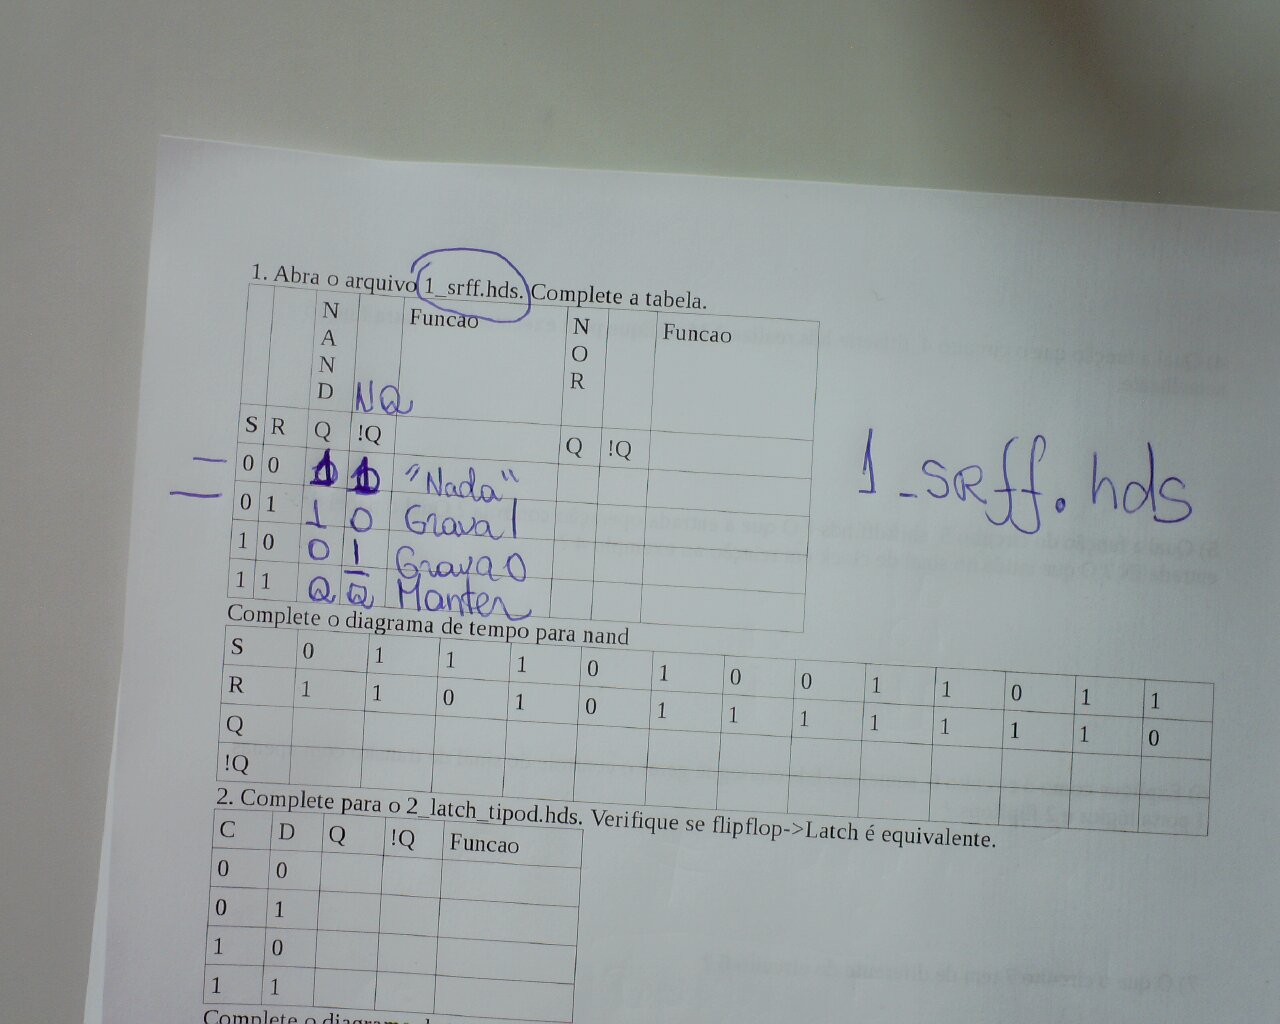 1. Abra o arquivo 1_srff.hds. Complete a tabela.
N A N D NQ Funcao N O R Funcao
S R Q !Q Q !Q
0 0 1 1 "Nada"
0 1 1 0 Grava 1
1 0 0 1 Grava 0
1 1 Q Q̅ Manter
1_SRff.hds
Complete o diagrama de tempo para nand
S 0 1 1 1 0 1 0 0 1 1 0 1 1
R 1 1 0 1 0 1 1 1 1 1 1 1 0
Q
!Q
2. Complete para o 2_latch_tipod.hds. Verifique se flipflop->Latch é equivalente.
C D Q !Q Funcao
0 0
0 1
1 0
1 1
Complete o